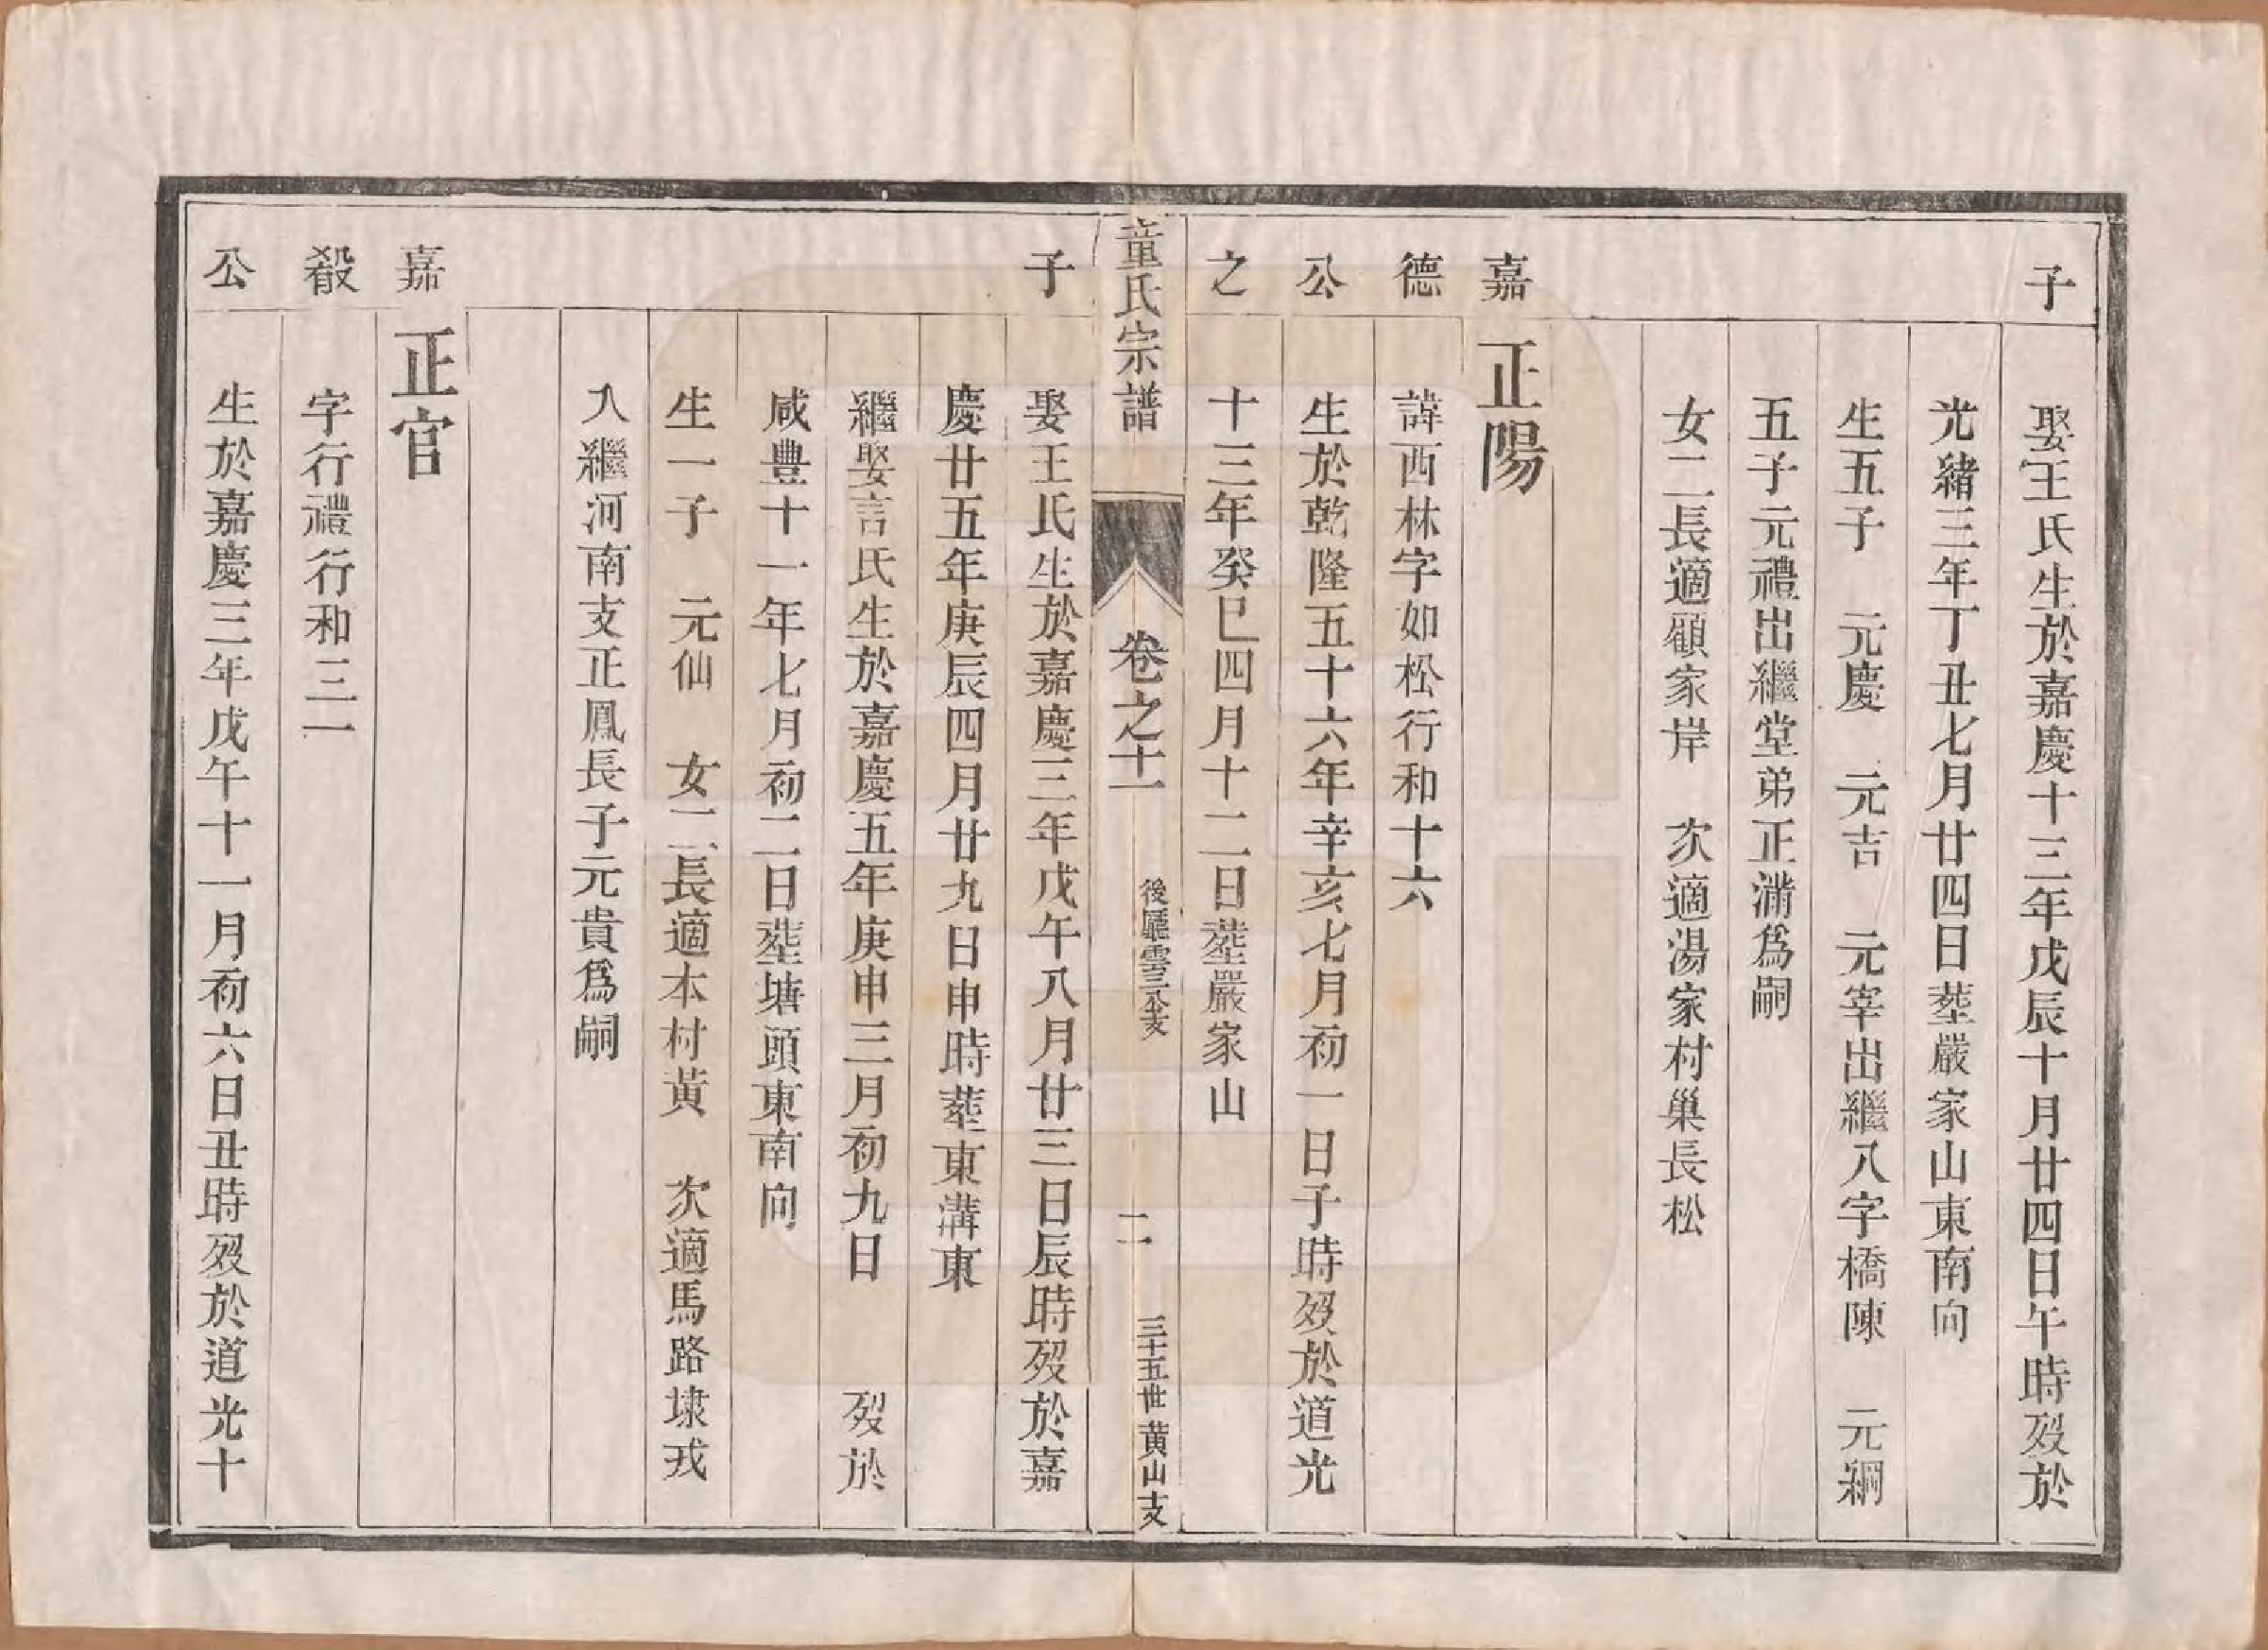 子
娶王氏生於嘉慶十三年戊辰十月廿四日午時歿於
光緒三年丁丑七月廿四日塟嚴家山東南向
生五子　元慶　元吉　元宰出繼八字橋陳　元綱
五子元禮出繼堂弟正滿爲嗣
女二長適顧家岸　次適湯家村巢長松
嘉德公之子
正陽
諱西林字如松行和十六
生於乾隆五十六年辛亥七月初一日子時歿於道光
十三年癸巳四月十二日塟嚴家山
童氏宗譜
卷之十一
後廳雲三公支
二
三十五世黄山支
娶王氏生於嘉慶三年戊午八月廿三日辰時歿於嘉
慶廿五年庚辰四月廿九日申時塟東溝東
繼娶言氏生於嘉慶五年庚申三月初九日　　歿於
咸豐十一年七月初二日塟塘頭東南向
生一子　元仙　女二長適本村黄　次適馬路埭戎
入繼河南支正鳳長子元貴爲嗣
嘉殽公
正官
字行禮行和三一
生於嘉慶三年戊午十一月初六日丑時歿於道光十